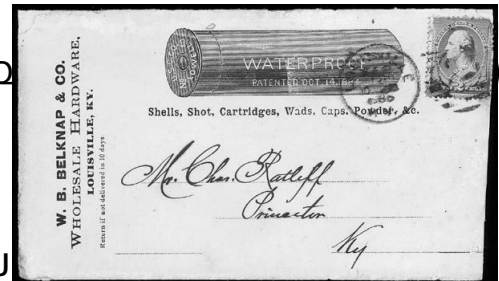 W. B. BELKNAP & CO.
WHOLESALE HARDWARE,
LOUISVILLE, KY.
Return if not delivered in 10 days
WATERPROOF
PATENTED OCT. 14.
Shells, Shot, Cartridges, Wads, Caps, Powder, &c.
Mr. Chas. Ratliff
Princeton
Ky